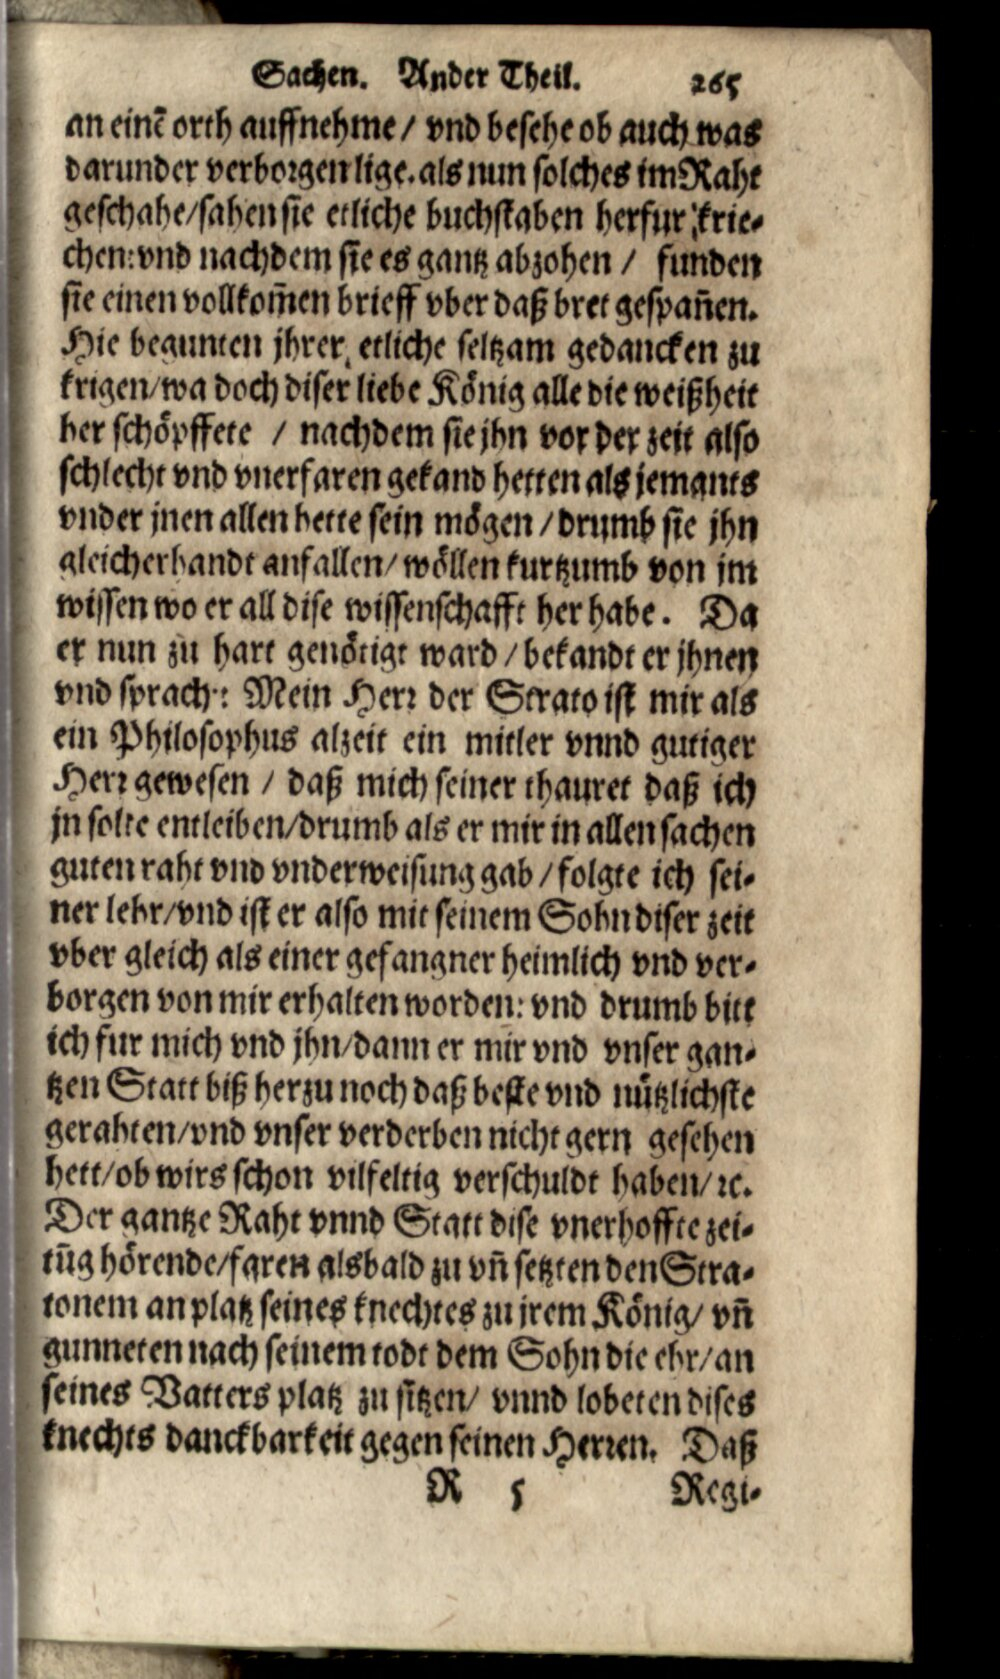 Sachen. Ander Theil. 265
an einē orth auffnehme / vnd besehe ob auch was
darunder verborgen lige. als nun solches im Raht
geschahe/sahen sie etliche buchstaben herfur krie-
chen: vnd nachdem sie es gantz abzohen / funden
sie einen vollkom̃en brieff vber daß bret gespañen.
Hie begunten jhrer etliche seltzam gedancken zu
krigen/wa doch diser liebe König alle die weißheit
her schöpffete / nachdem sie jhn vor der zeit also
schlecht vnd vnerfaren gekand hetten als jemants
vnder jnen allen hette sein mögen / drumb sie jhn
gleicherhandt anfallen/ wöllen kurtzumb von jm
wissen wo er all dise wissenschafft her habe. Da
er nun zu hart genötigt ward / bekandt er jhnen
vnd sprach: Mein Herr der Strato ist mir als
ein Philosophus alzeit ein mitler vnnd gutiger
Herr gewesen / daß mich seiner thauret daß ich
jn solte entleiben/drumb als er mir in allen sachen
guten raht vnd vnderweisung gab / folgte ich sei-
ner lehr/vnd ist er also mit seinem Sohn diser zeit
vber gleich als einer gefangner heimlich vnd ver-
borgen von mir erhalten worden: vnd drumb bitt
ich fur mich vnd jhn/dann er mir vnd vnser gan-
tzen Statt biß herzu noch daß beste vnd nützlichste
gerahten/vnd vnser verderben nicht gern gesehen
hett/ob wirs schon vilfeltig verschuldt haben/ ꝛc.
Der gantze Raht vnnd Statt dise vnerhoffte zei-
tũg hörende/faren alsbald zu vñ setzten den Stra-
tonem an platz seines knechtes zu jrem König/ vñ
gunneten nach seinem todt dem Sohn die ehr/an
seines Vatters platz zu sitzen/ vnnd lobeten dises
knechts danckbarkeit gegen seinen Herren. Daß
R 5 Regi-